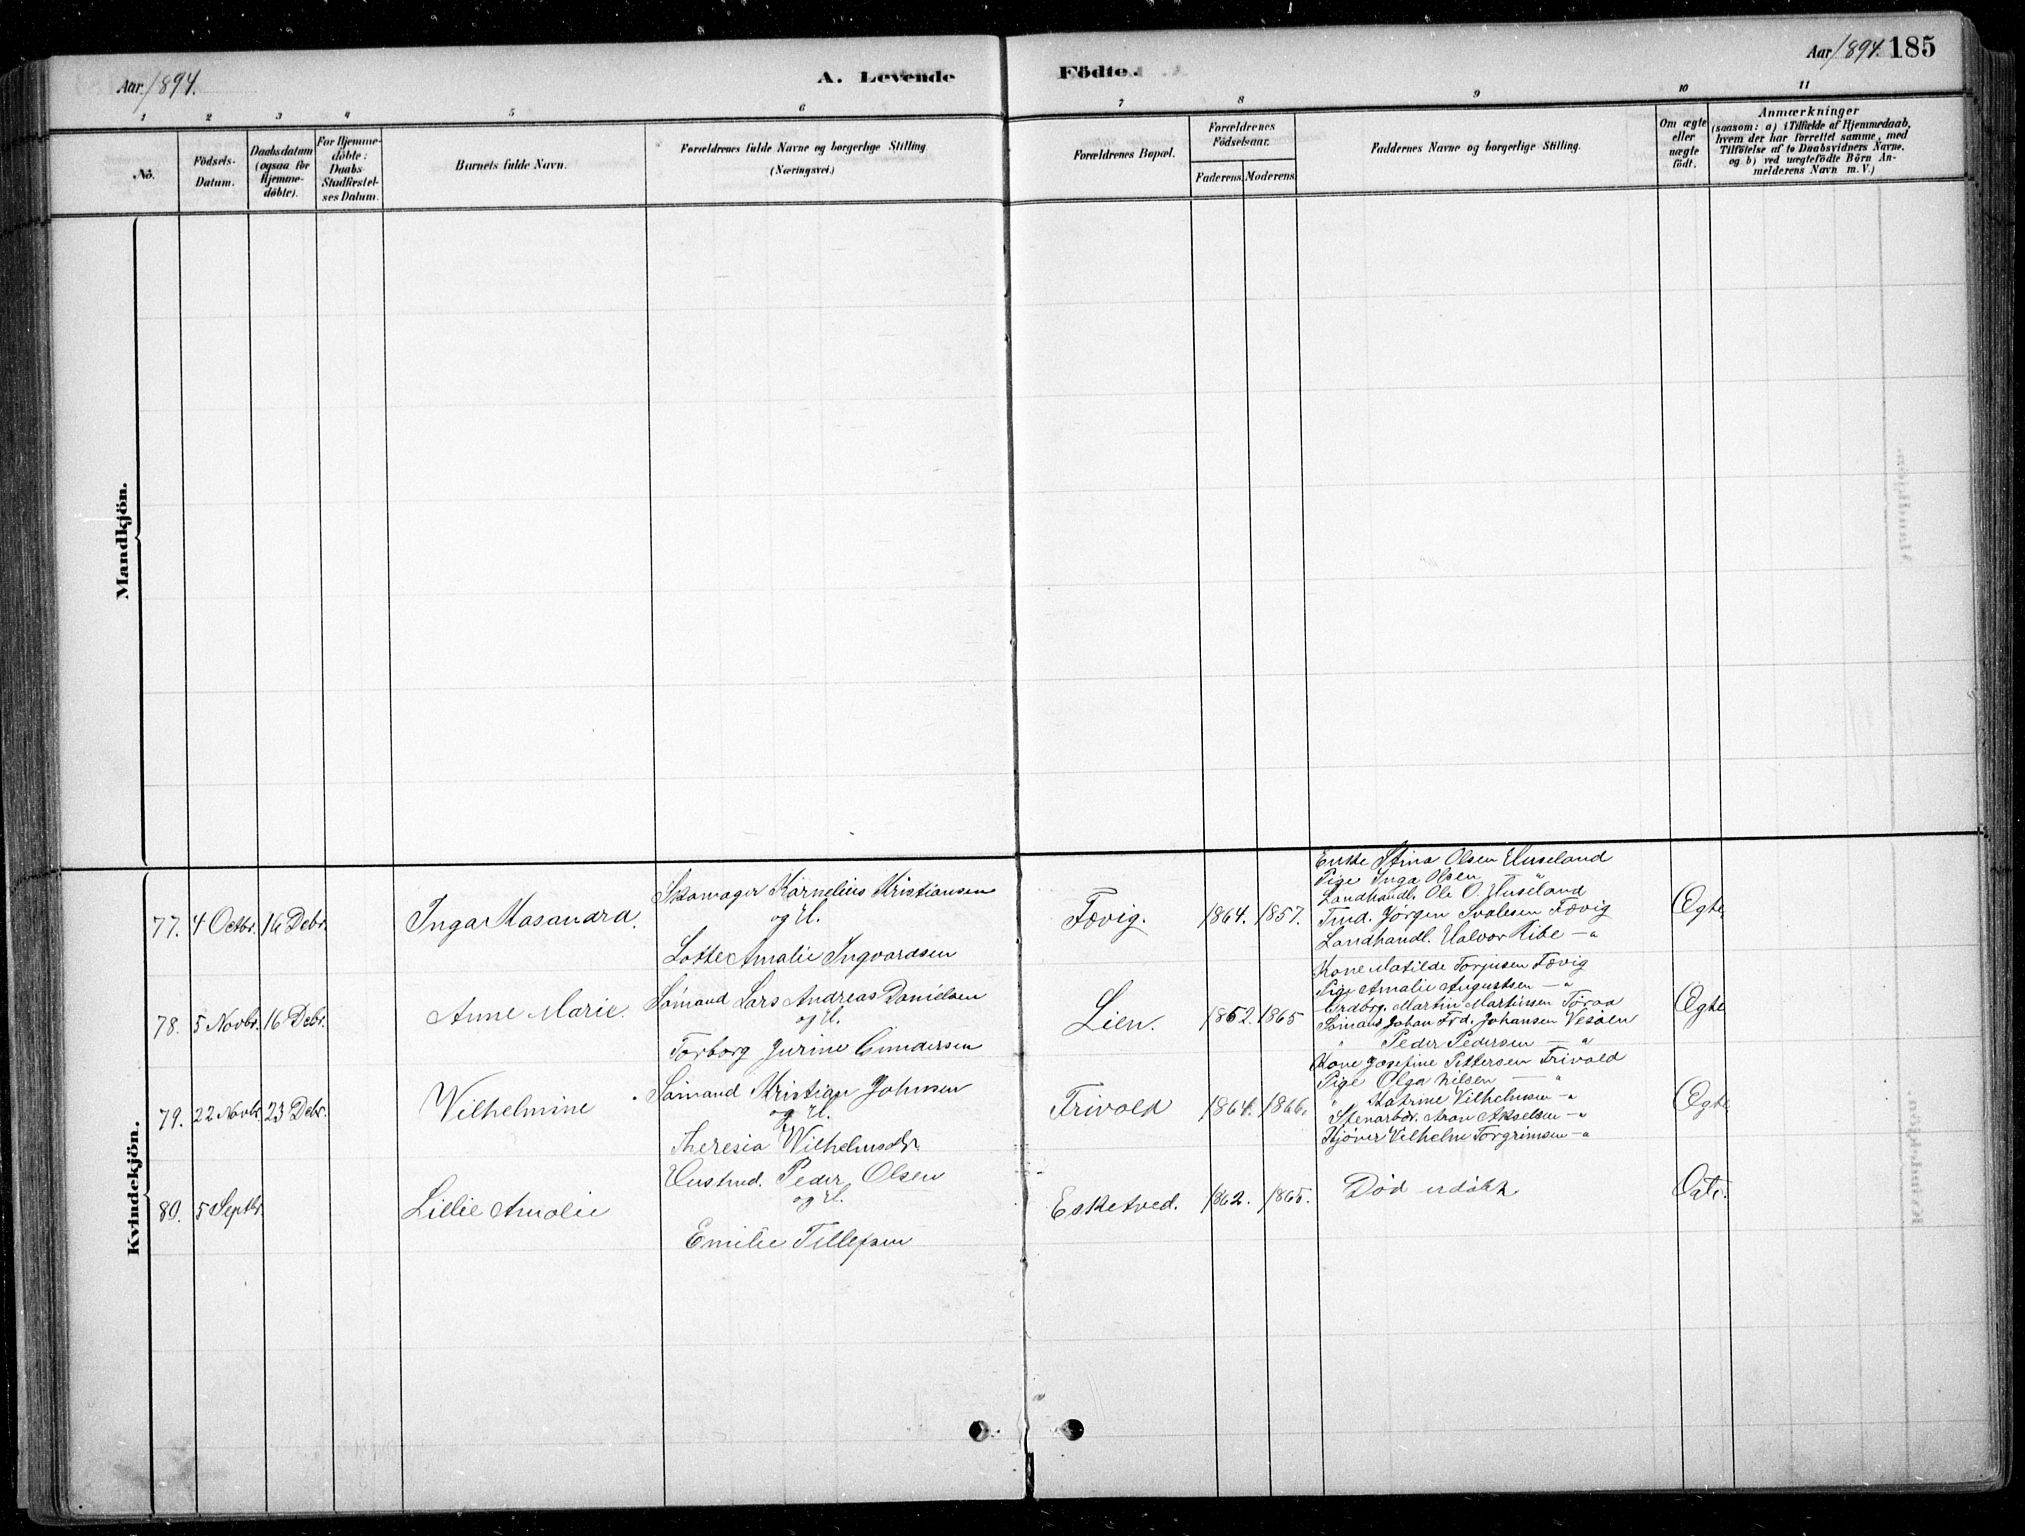 Aar 1894.
A. Levende Födte.
Aar 1894. 185
1 2 3 4 5 6 7 8 9 10 11
No.
Födsels-Datum.
Daabsdatum (ogsaa for Hjemmedöbte).
For Hjemmedöbte: Daabs-Stadfæstelses Datum.
Barnets fulde Navn.
Forældrenes fulde Navne og borgerlige Stilling (Næringsvei.)
Forældrenes Bopæl.
Forældrenes Födselsaar.
Faderens. Moderens.
Faddernes Navne og borgerlige Stilling.
Om ægte eller uægte födt.
Anmærkninger
(saasom: a) i Tilfælde af Hjemmedaab, hvem der har forrettet samme, med Tilföielse af to Daabsvidners Navne, og b) ved uægtefödte Börn Anmelderens Navn m. V.)
Mandkjön.
Kvindekjön.
77. 4 Octbr. 16 Debr. Inga Kasandra.
Skomager Kornelius Kristiansen
og H.
Lotte Amalie Ingvardsen
Fævig. 1864. 1857.
Enke Stina Olsen Huseland
Pige Inga Olsen "
Landhandl. Ole O. Huseland
Tmd. Jørgen Svalesen Fævig
Landhandl. Halvor Ribe — "
Ægte
78. 5 Novbr. 16 Debr. Anne Marie
Sömand Lars Andreas Danielsen
og H.
Torborg Jurine Gundersen
Lien. 1862. 1865
Kone Matilde Torjusen Fævig
Pige Amalie Augustsen — "
Martin Martinsen
Sömand Johan Frd. Johansen Vesöen
" Peder Pedersen — "
Ægte
79. 22 Novbr. 23 Debr. Vilhelmine
Sömand Kristian Johnsen
og H.
Theresia Wilhelmsdr.
Trivold 1864. 1866.
Kone Josefine Pettersen Trivold
Pige Olga Nilsen — "
" Katrine Vilhelmsen — "
Stenarbdr. Aron Akselsen — "
Vilhelm Torgrimsen — "
Ægte
80. 5 Septbr. Lillie Amalie
Husmd. Peder Olsen
og H.
Emilie Tellefsen
Esketved. 1862. 1865.
Död udöbt